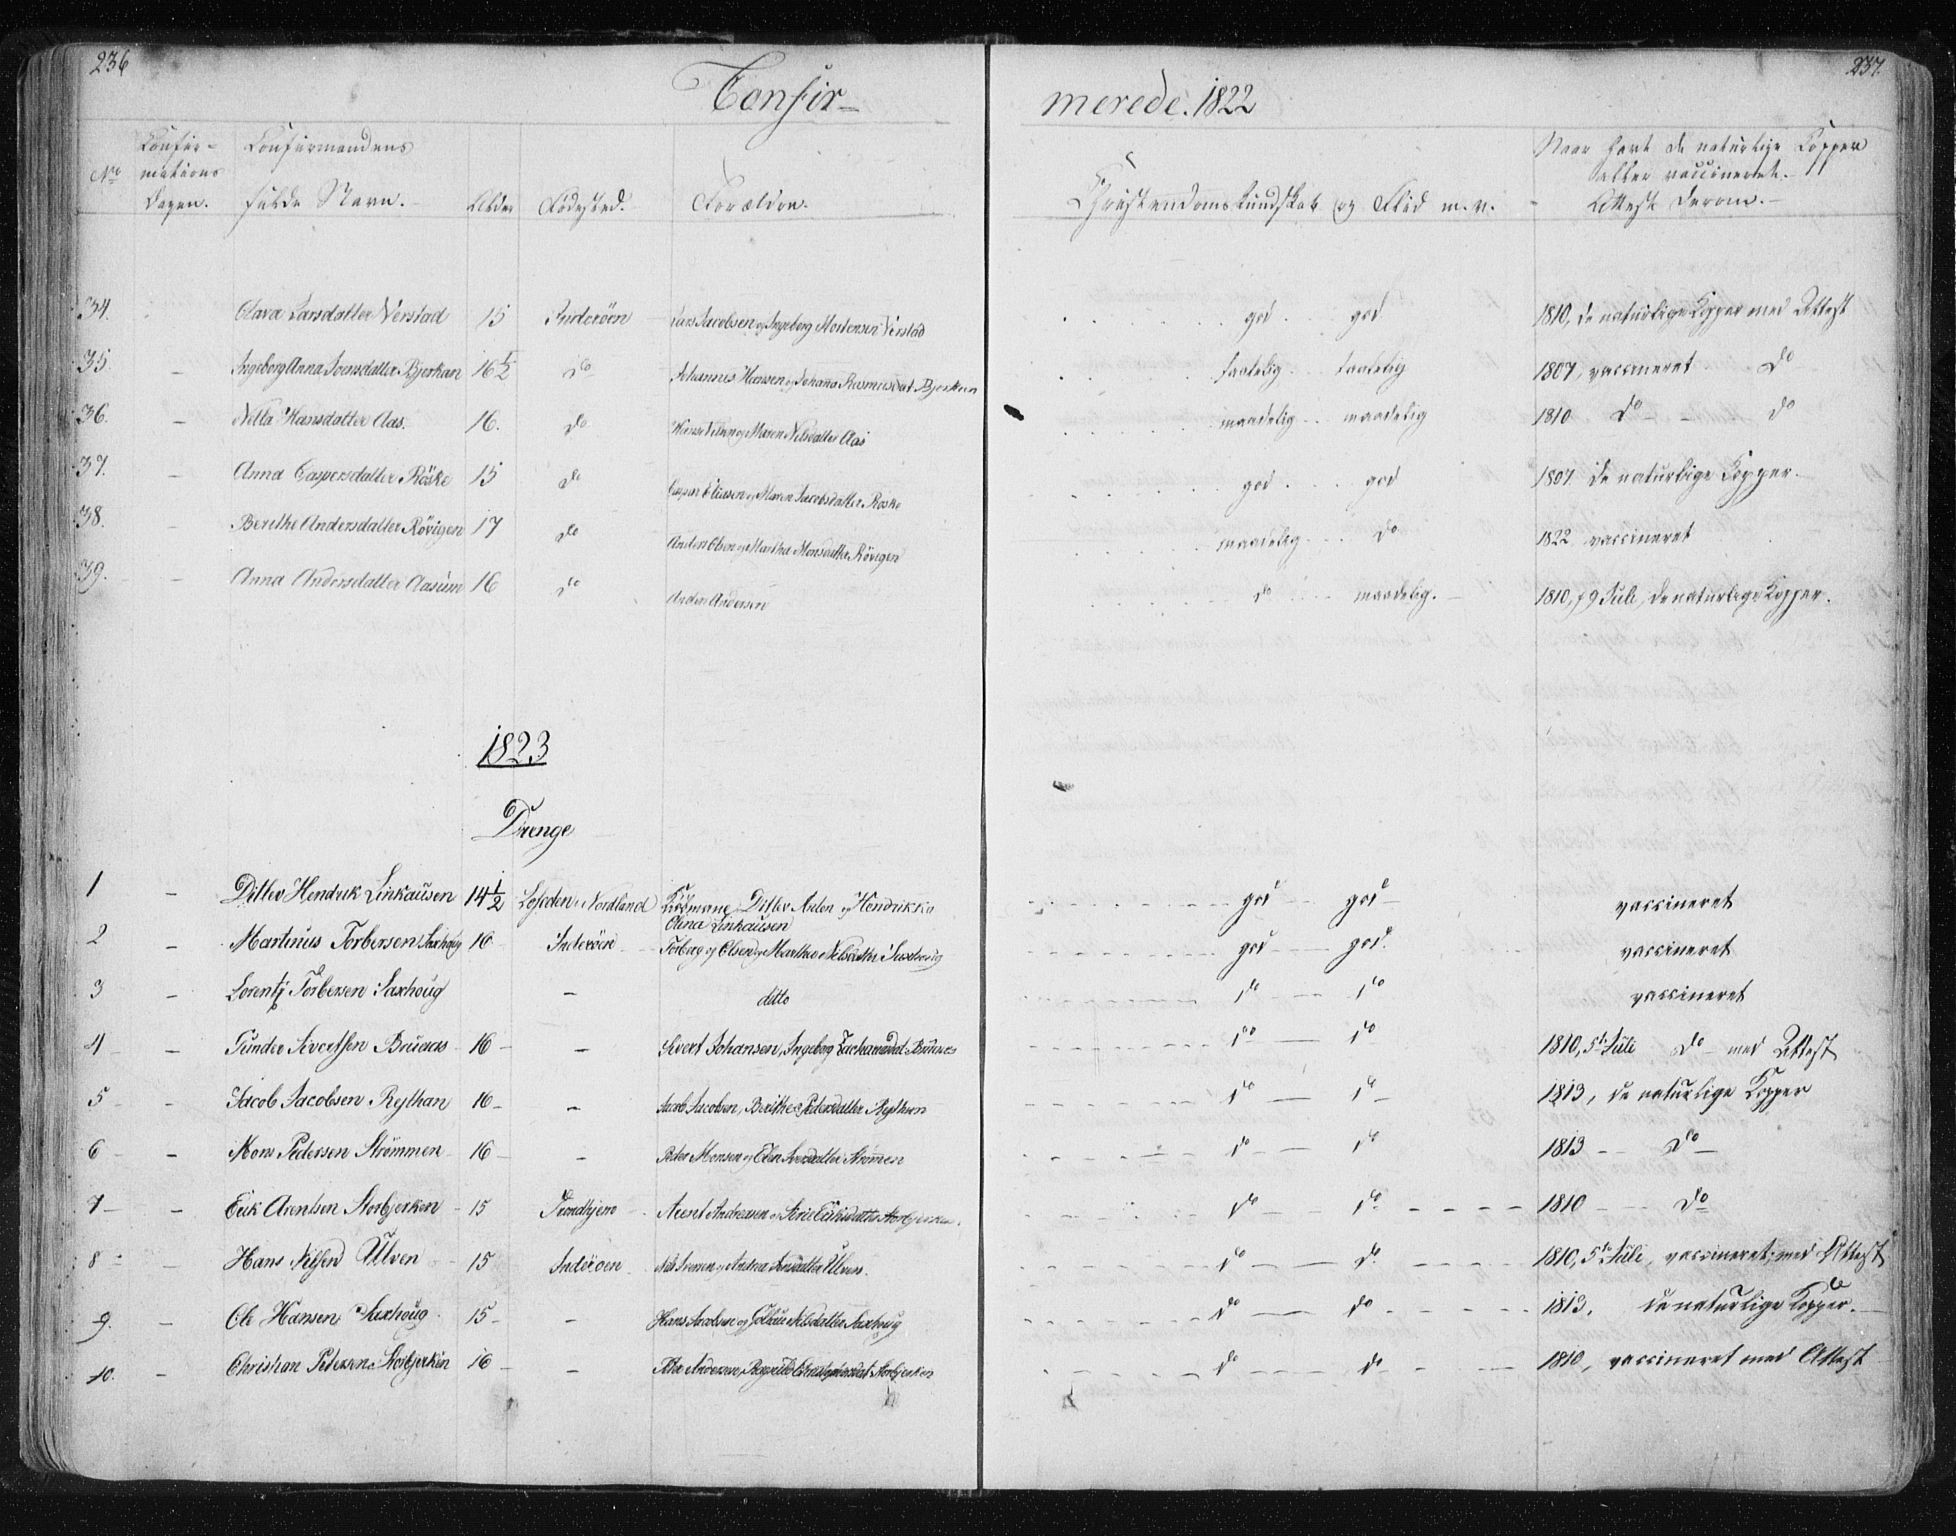 236
237.
Confir-
merede. 1822
No
Confir-
mations
Dagen.
Confirmandens
fulde Navn.
Alder
Fødested.
Forældre.
Christendoms Kundskab og Flid m. v.
Naar havt de naturlige Kopper
eller vaccineret.
Attest derom.
34. Clara Larsdatter Verstad 15 Inderöen Lars Jacobsen og Ingeborg Mortensen Verstad god god 1810, de naturlige Kopper med Attest
35. Ingeborg Anna Joensdatter Bjerkan 16 1/2 do Johannes Hansen og Johana Rasmusdat Bjerken taalelig taalelig 1807, vaccineret do
36. Nella Hansdatter Aas. 16. do Maren Nilsdatter Aas maadelig maadelig 1810 do do
37. Anna Caspersdatter Röske 15 do Casper Eliassen og Maren Jacobsdatter Roske god god 1807 de naturlige Kopper.
38. Berithe Andersdatter Rövigen 17 do Anders Olsen og Martha Monsdatter Rövigen maadelig do 1822 vaccineret
39. Anna Andersdatter Aasum 16 do Anders Andersen do maadelig. 1810, 19 Juli, de naturlige Kopper.
1823
Drenge
1 - Ditlev Hendrik Linkausen 14 1/2 Lofoden i Nordland Ditlev Anton og Hendrikka god god vaccineret
Olina Linkausen
2 - Martinus Torbersen Saxhoug 16 Inderöen Olsen og Marthe Nilsdatter Saxhoug god god. vaccineret
3 - Lorentz Torbersen Saxhoug - ditto do do vaccineret
4 - Gunder Sivertsen Brueaas 16 - Sivert Johansen, Ingeborg Zachariadat Brueaas do do 1810, 5te Juli do med Attest
5 - Jacob Jacobsen Rejthan 16 - Jacob Jacobsen, Berithe Pedersdatter Rejthan do do 1813, de naturlige Kopper
6 - Mons Pedersen Strömmen 16 - Peder Monsen og Ellen Strömmen do do 1813 - do
7 - Erik Arentsen Storbjerken 15 Trondhjem Arent Andreasen og Eriksdatter Storbjerken do do 1810 - do
8 - Hans Nilsen Ulven 15 Inderöen Nils Iversen og Andrea Ulven. do do 1810, 5te Juli, vaccineret, med Attest
9. - Ole Hansen Saxhoug 15 - Hans Jacobsen og Nilsdatter Saxhoug do do 1813, de naturlige Kopper.
10. - Christian Pedersen Storbjerken 16 - Peder Andersen, Storbjerken do do 1810, vaccineret med Attest